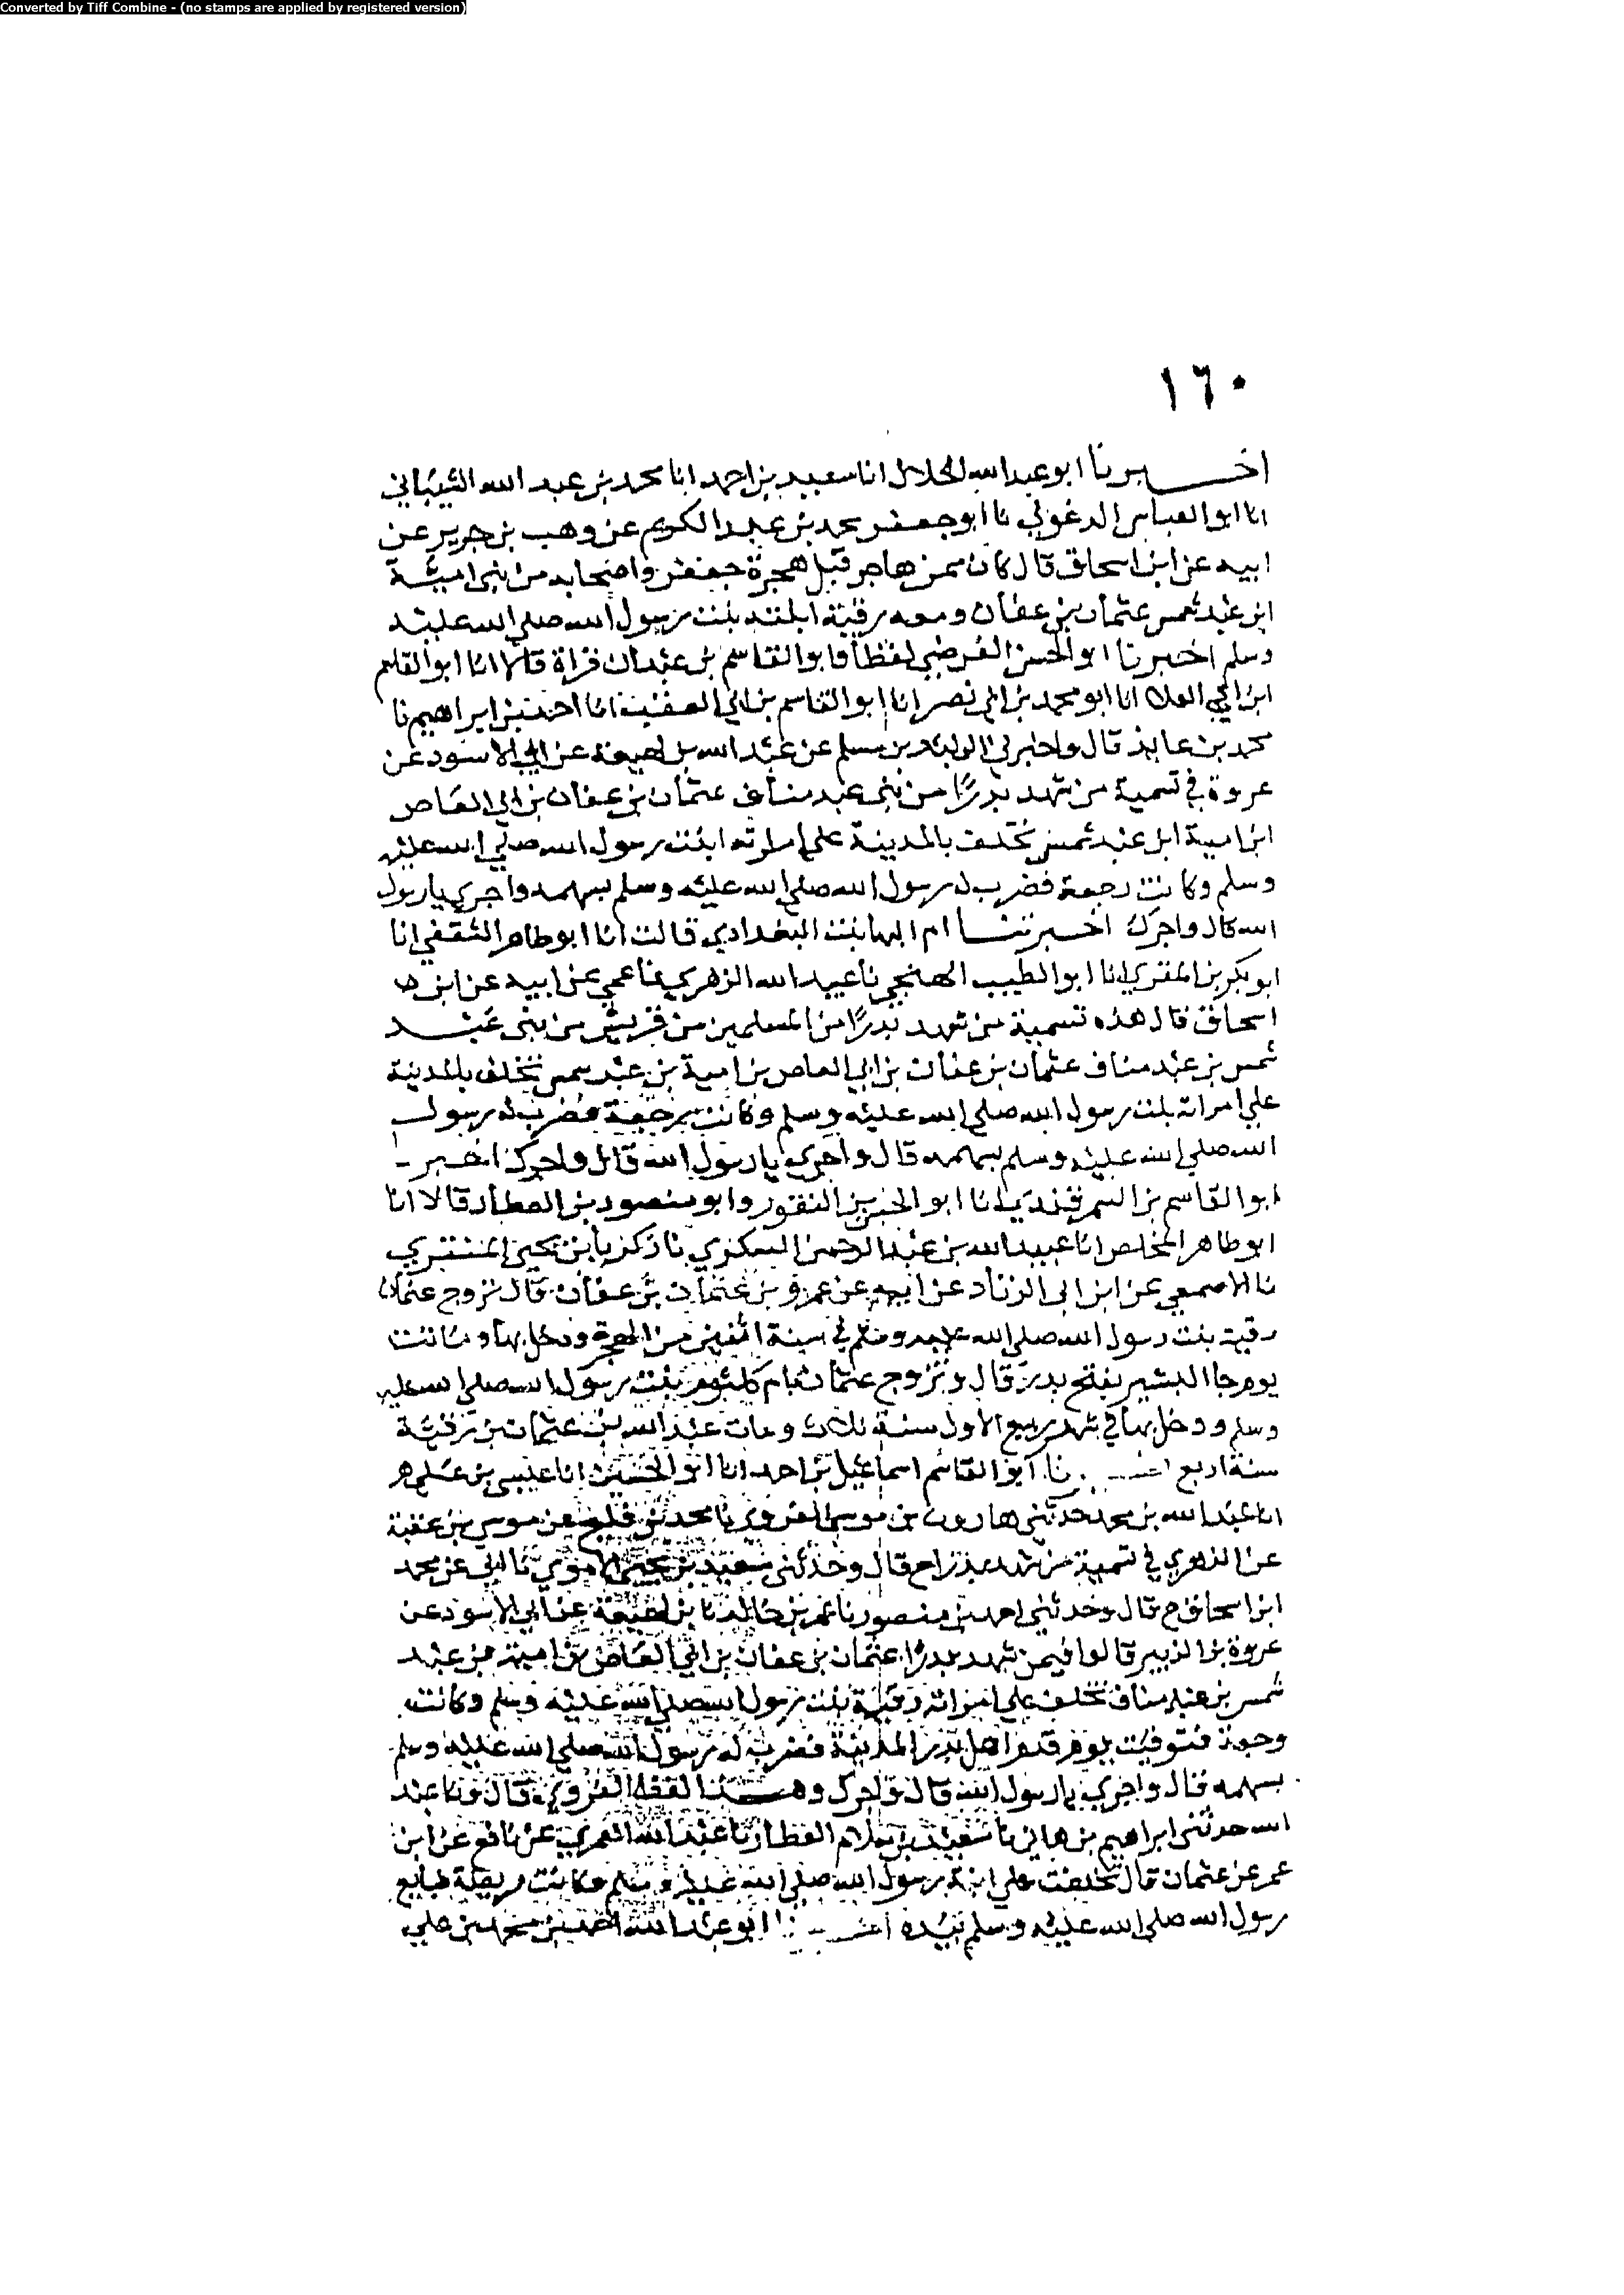 Converted by Tiff Combine - (no stamps are applied by registered version)
١٦٠
اخبرنا ابو عبد الله الخلال انا سعيد بن احمد انا محمد بن عبد الله الشيباني
انا ابو العباس الدغولي نا ابو جعفر محمد بن عبد الكريم عن وهب بن جرير عن
ابيه عن ابن اسحاق قال كان ممن هاجر قبل هجرة جعفر واصحابه من بني امية
ابن عبد شمس عثمان بن عفان ومعه رقية ابنته بنت رسول الله صلى الله عليه
وسلم اخبرنا ابو الحسن الفرضي لفظا وابو القاسم بن عبدان قراة قالا انا ابو القاسم
ابن ابي العلا انا ابو محمد بن ابي نصر انا ابو القاسم بن ابي العقب انا احمد بن ابراهيم نا
محمد بن عايذ قال واخبرني الوليد بن مسلم عن عبد الله بن لهيعة عن ابي الاسود عن
عروة في تسمية من شهد بدرًا من بني عبد مناف عثمان بن عفان بن ابي العاص
ابن امية ابن عبد شمس تخلف بالمدينة على امراته ابنت رسول الله صلى الله عليه
وسلم وكانت وجعة فضرب له رسول الله صلى الله عليه وسلم بسهمه واجري يا رسول
الله قال واجرك اخبرتنا ام البها بنت البغدادي قالت انا ابو طاهر الثقفي انا
ابو بكر بن المقري انا ابو الطيب المنبجي نا عبيد الله الزهري نا عمي عن ابيه عن ابن
اسحاق قال هذه تسمية من شهد بدرًا من المسلمين من قريش من بني عبد
شمس بن عبد مناف عثمان بن عفان بن ابي العاص بن امية بن عبد شمس تخلف بالمدينة
على امراته بنت رسول الله صلى الله عليه وسلم وكانت وجعة فضرب له رسول
الله صلى الله عليه وسلم بسهمه قال واجري يا رسول الله قال واجرك اخبر
ابو القاسم بن السمرقندي انا ابو الحسين بن النقور وابو منصور بن العطار قالا انا
ابو طاهر المخلص انا عبيد الله بن عبد الرحمن السكري نا زكريا بن يحيى المنقري
نا الاصمعي عن ابن ابي الزناد عن ابيه عن عمرو بن عثمان بن عفان قال تزوج عثمان
رقية بنت رسول الله صلى الله عليه وسلم في سنة اثنين من الهجرة ودخل بها وماتت
يوم جا البشير بفتح بدر قال وتزوج عثمان بام كلثوم بنت رسول الله صلى الله عليه
وسلم ودخل بها في شهر ربيع الاول سنة ثلاث ومات عبد الله بن عثمان بن رقية
سنة اربع اخبرنا ابو القاسم اسماعيل بن احمد انا ابو الحسين انا عيسى بن علي
انا عبد الله بن محمد حدثني هارون بن موسى الفروي نا محمد بن فليح عن موسى بن عقبة
عن الزهري في تسمية من شهد بدرا ح قال وحدثني سعيد بن يحيى الاموي نا ابي عن محمد
ابن اسحاق ح قال وحدثني احمد بن منصور نا عمرو بن خالد نا بن لهيعة عن ابي الاسود عن
عروة بن الزبير قالوا فيمن شهد بدرًا عثمان بن عفان بن ابي العاص بن امية بن عبد
شمس بن عبد مناف تخلف على امراته رقية بنت رسول الله صلى الله عليه وسلم وكانت
وجعة فتوفيت يوم قدم اهل بدر المدينة فضرب له رسول الله صلى الله عليه وسلم
بسهمه قال واجري يا رسول الله قال واجرك وهذا لفظ الفروي قال ونا عبد
الله حدثني ابراهيم بن هاني نا سعيد بن سلام العطار نا عبد الله العمري عن نافع عن ابن
عمر عن عثمان قال تخلفت على ابنة رسول الله صلى الله عليه وسلم وكانت مريضة فبايع
رسول الله صلى الله عليه وسلم بيده اخبرنا ابو عبد الله محمد بن علي